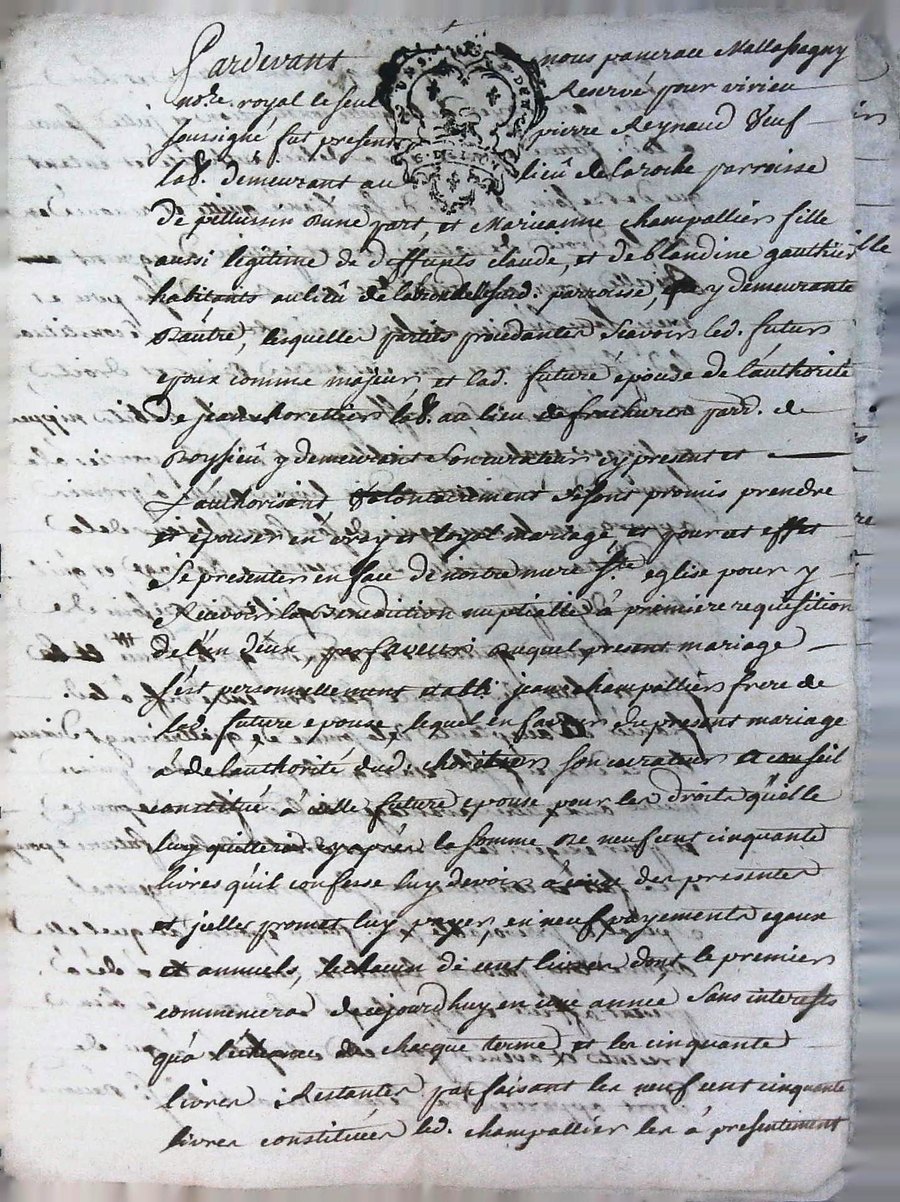 Pardevant nous pancrace Mallassagny
no.re royal le seul Reservé pour virieu
soussigné, fut present pierre Reynaud veuf
lab. demeurant au lieû de la roche parroisse
de pellussin d'une part, et Marieanne champallier fille
aussi legitime de deffunts claude, et de blandine gauthier
habitants au lieû de susd. parroisse, y demeurante
d'autre, lesquelles parties procedantes scavoir led. futur
epoux comme majeur et lad. future epouse de l'authorité
de jean chorettier lab. au lieu de parr. de
Roysieû y demeurant son curateur cy present et
l'authorisant volontairement se sont promis prendre
et epouser en vray et loyal mariage, et pour cet effet
se presenter en face de nostre mere s.te eglise pour y
Recevoir la Benediction nuptialle á premiere requisition
de l'un d'eux par faveur duquel present mariage
s'est personnellement etabli jean champallier frere de
lad. future epouse, lequel en faveur du present mariage
á de l'authorité dud. chorettier son curateur et conseil
constitué á icelle future epouse pour les droits qu'elle
luy quittera cy aprés la somme de neuf cent cinquante
livres qu'il confesse luy devoir á cause des presentes
et icelles promet luy payer en neuf payements egaux
et annuels, de chacun de cent livres dont le premier
commencera de cejourd'huy en une année sans interests
qu'a l'echeance de chacque terme, et les cinquante
livres Restantes parfaisant les neuf cent cinquante
livres constituées led. champallier les á presentement